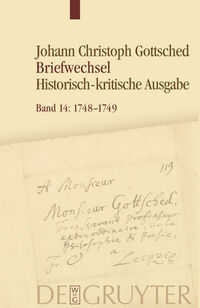 Johann Christoph Gottsched
Briefwechsel
Historisch-kritische Ausgabe
Band 14: 1748–1749
113
A Monsieur
Monsieur Gottsched,
Professeur
extraordinaire, de la
Philosophie & Poesie,
Fr. C a Leipzig.
DE GRUYTER